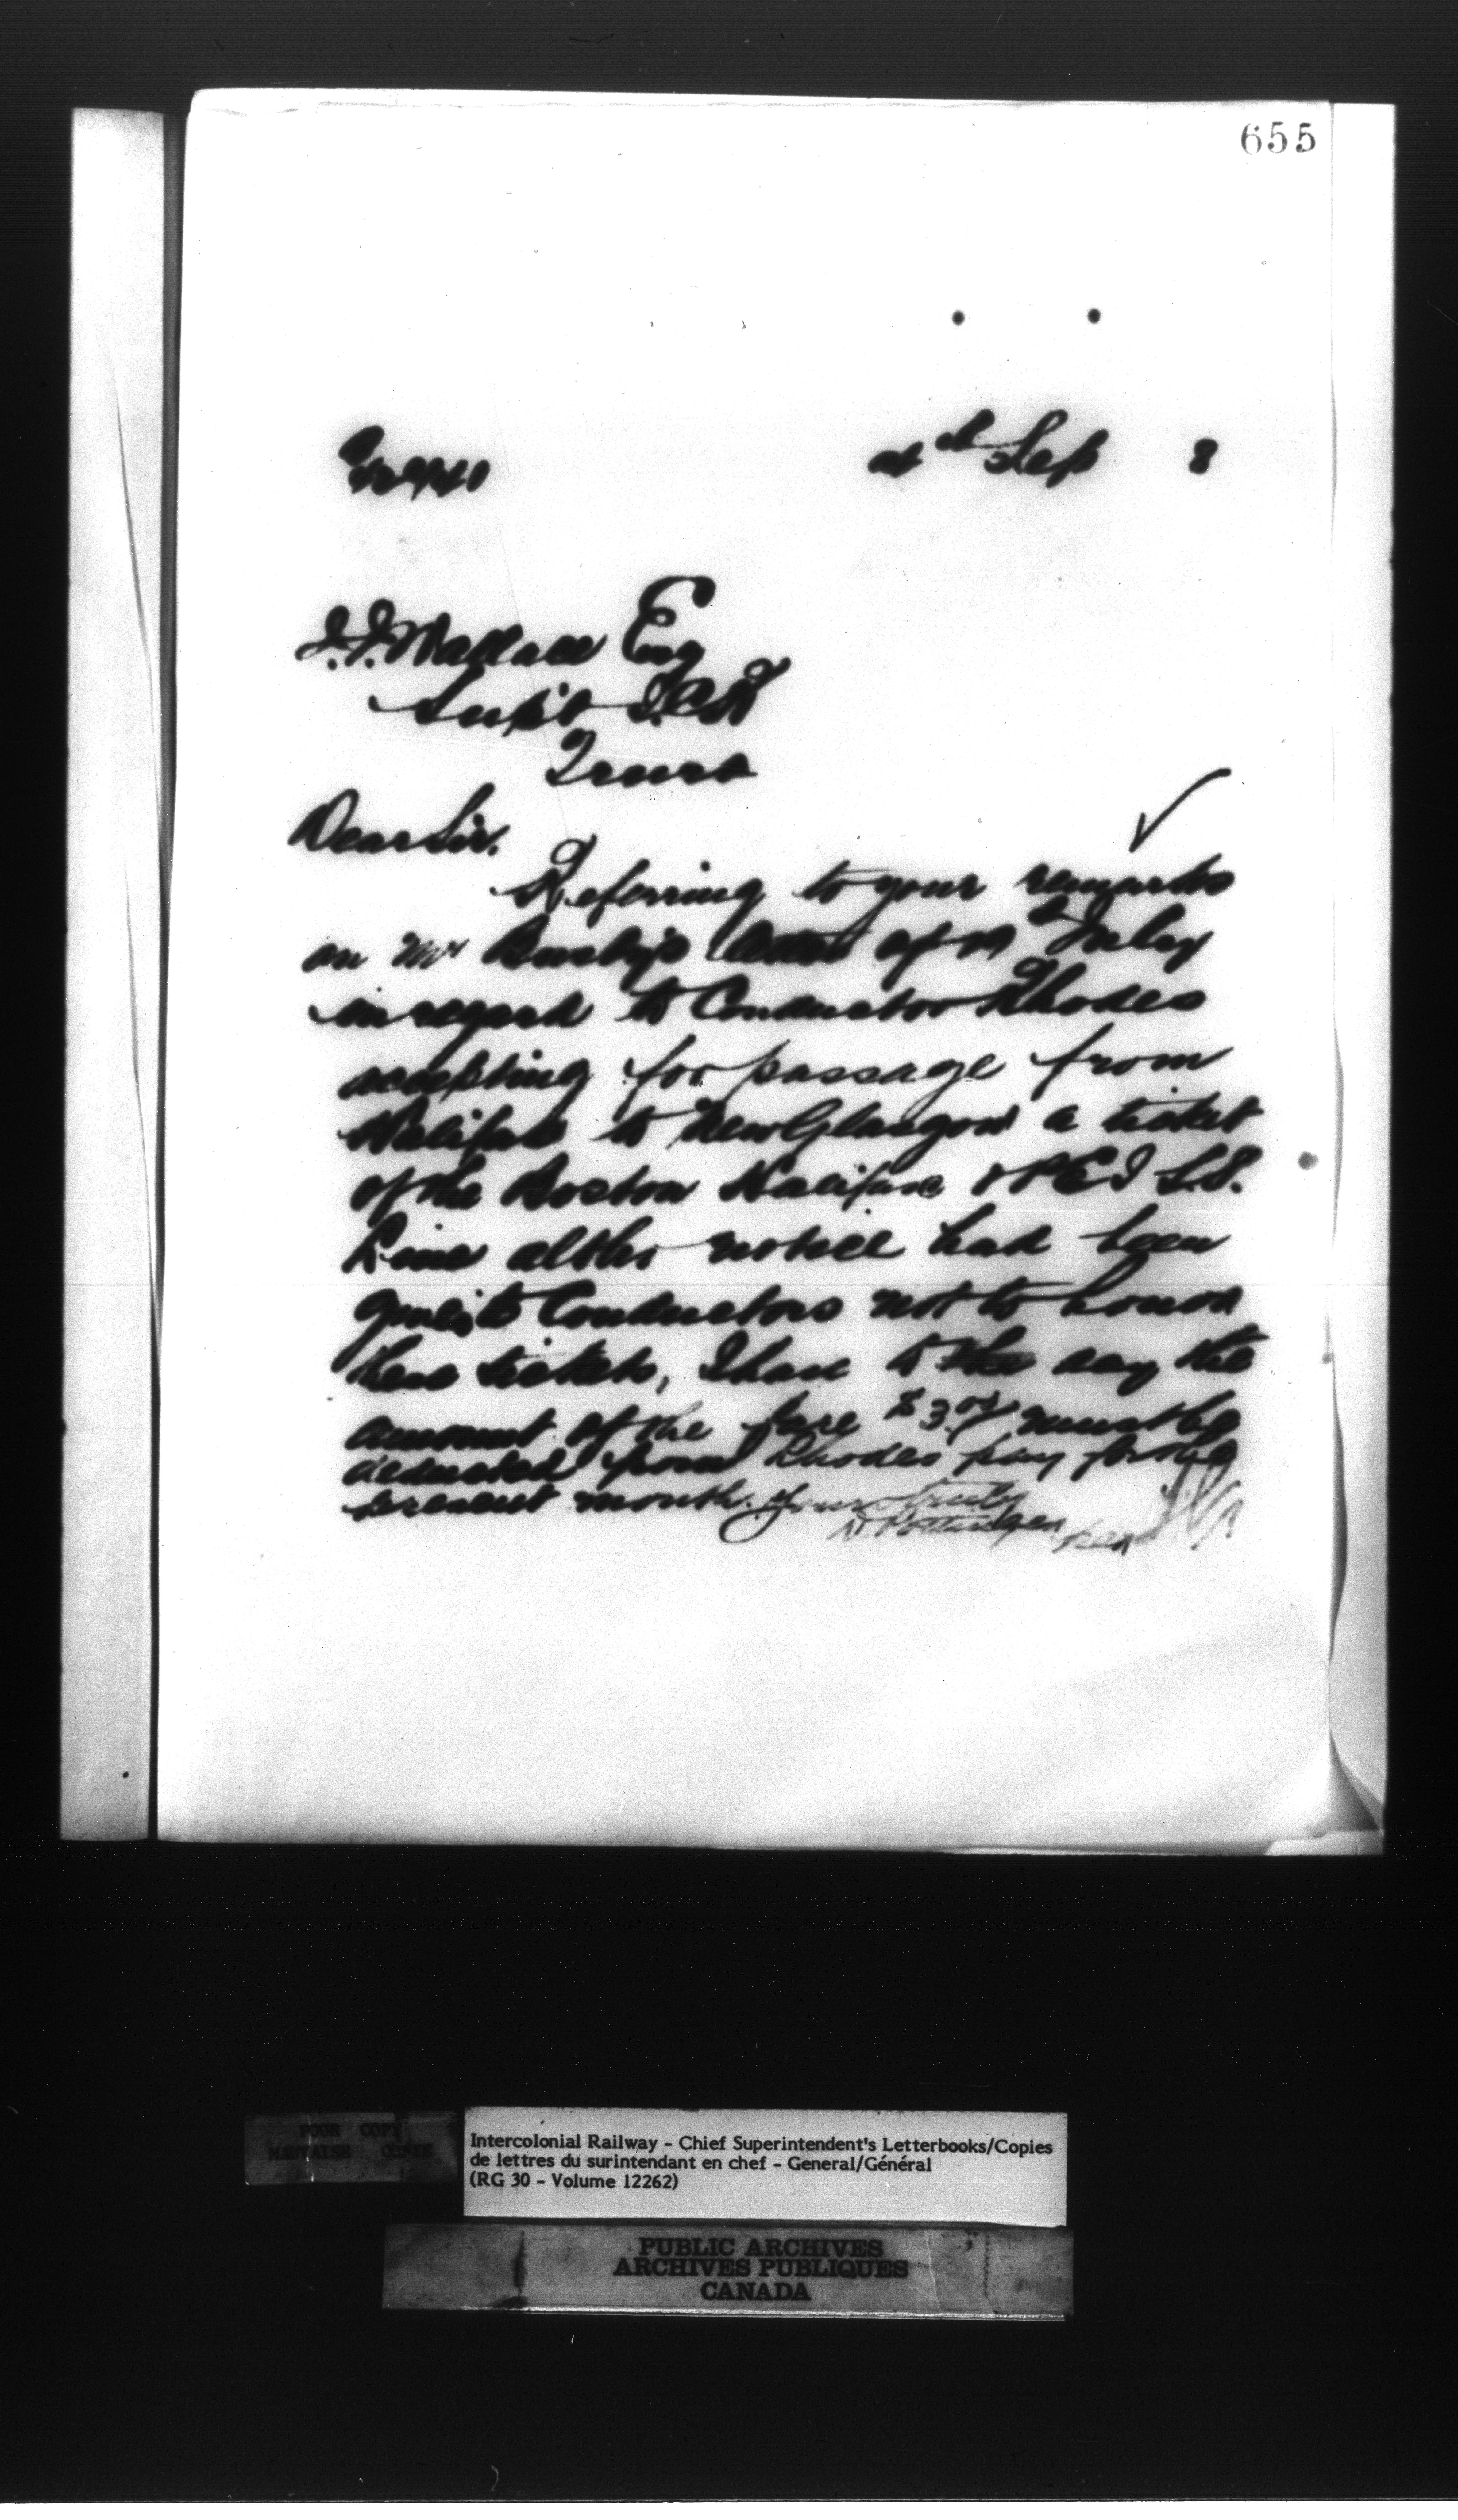 655
4th Sep 8
J.J. Wallace Esq
Supt I.C.R
Truro
Dear Sir.
Referring to your remarks
on Mr Busby's letter of 19th July
in regard to Conductor Rhodes
accepting for passage from
Halifax to New Glasgow a ticket
of the Boston Halifax & P E I S.S.
Line altho notice had been
given to Conductors not to honor
these tickets, I have to say the
amount of the fare $3. must be
deducted from Rhodes pay for the
present month. Yours truly
D. Pottinger
POOR COPY
MAUVAISE COPIE
Intercolonial Railway - Chief Superintendent's Letterbooks/Copies
de lettres du surintendant en chef - General/Général
(RG 30 - Volume 12262)
PUBLIC ARCHIVES
ARCHIVES PUBLIQUES
CANADA